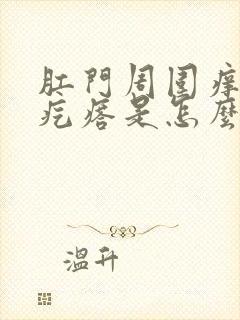 肛門周圍癢
疙瘩是怎麼
溫升